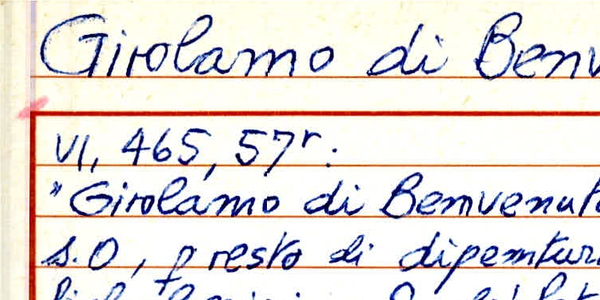 Girolamo di Benv
VI, 465, 57r:
"Girolamo di Benvenut
s.0, presto di dipentur